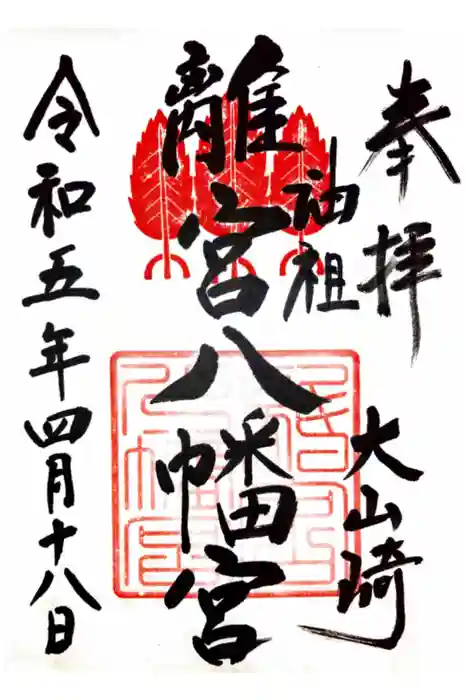 奉拝
大山崎
油祖
離宮八幡宮
令和五年四月十八日